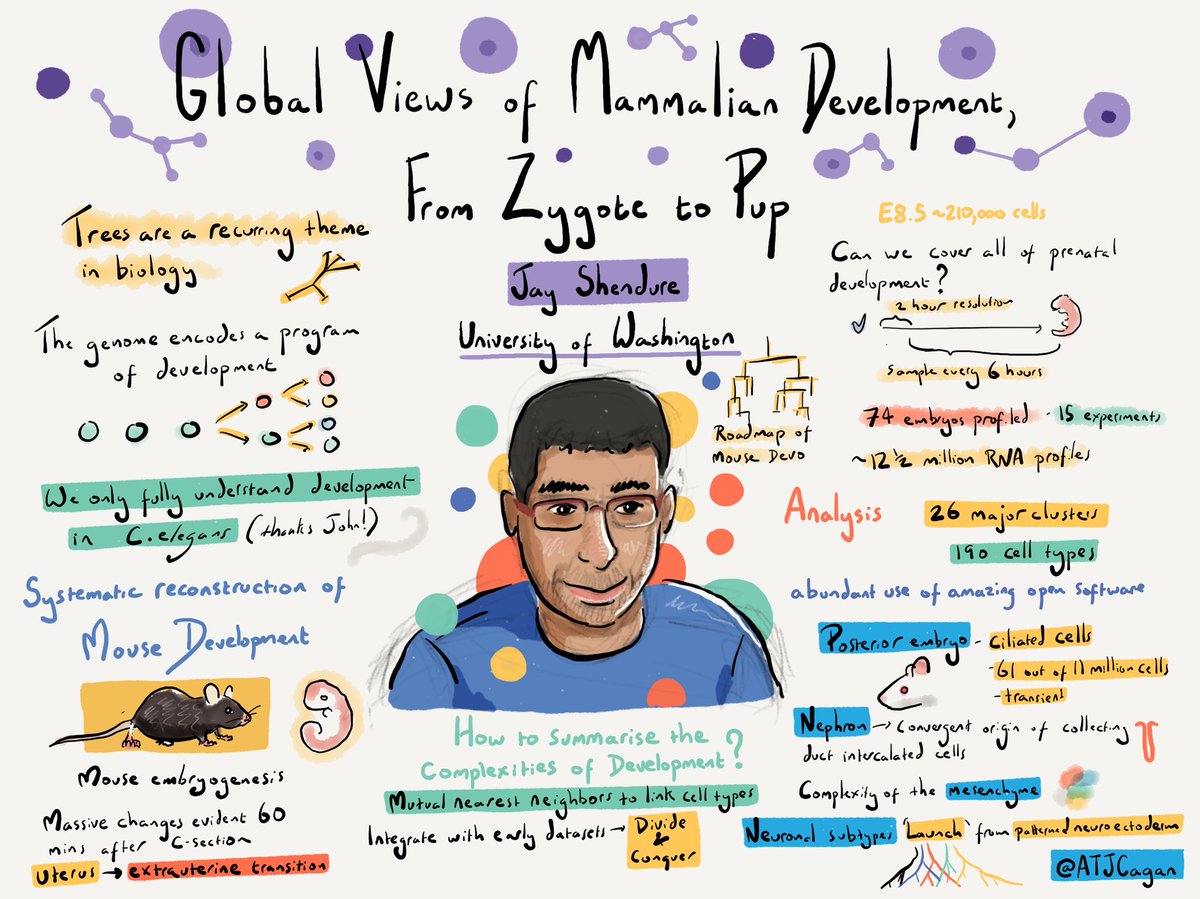 Global Views of Mammalian Development,
From Zygote to Pup
Jay Shendure
University of Washington
Trees are a recurring theme
in biology
The genome encodes a program
of development
We only fully understand development
in C.elegans (thanks John!)
Systematic reconstruction of
Mouse Development
Mouse embryogenesis
Massive changes evident 60
mins after C-section
Uterus → extrauterine transition
Roadmap of
Mouse Devo
How to summarise the
Complexities of Development?
Mutual nearest neighbors to link cell types
Integrate with early datasets → Divide
&
Conquer
E8.5 ~210,000 cells
Can we cover all of prenatal
development?
2 hour resolution
Sample every 6 hours
74 embryos profiled - 15 experiments
~12 ½ million RNA profiles
Analysis
26 major clusters
190 cell types
abundant use of amazing open software
Posterior embryo - ciliated cells
- 61 out of 11 million cells
- transient
Nephron → Convergent origin of collecting
duct intercalated cells
Complexity of the mesenchyme
Neuronal subtypes 'Launch' from patterned neuroectoderm
@ATJCagan